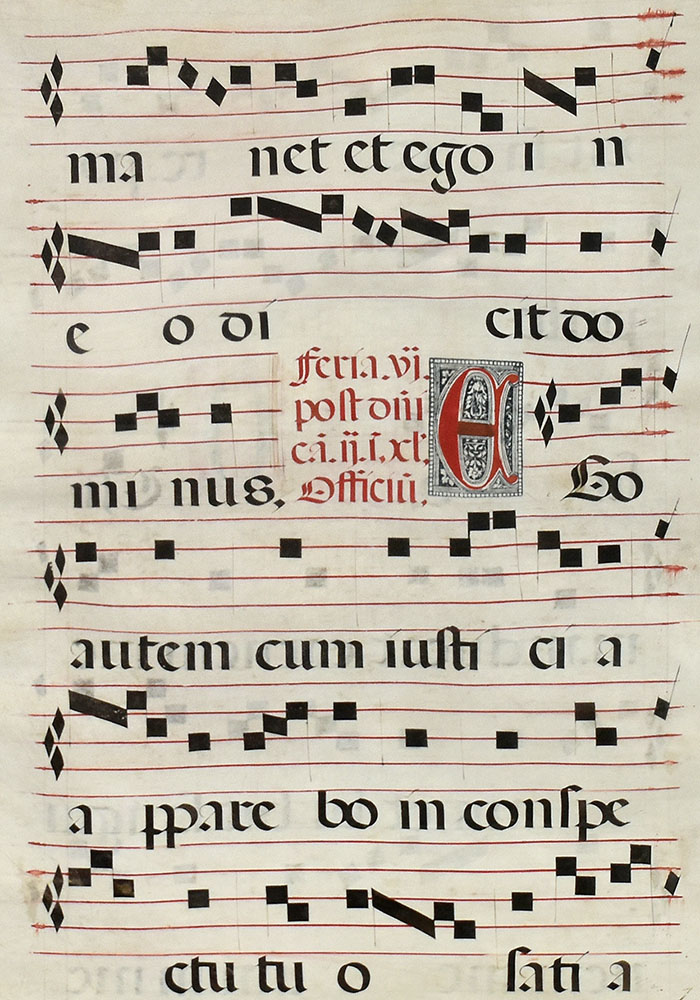 ma net et ego i n
e o di cit do
mi nus.
feria. vj.
post dñi
cã. ij. i. xl.
Officiũ.
E Go
autem cum iusti ci a
a ppare bo in conspe
ctu tu o sati a